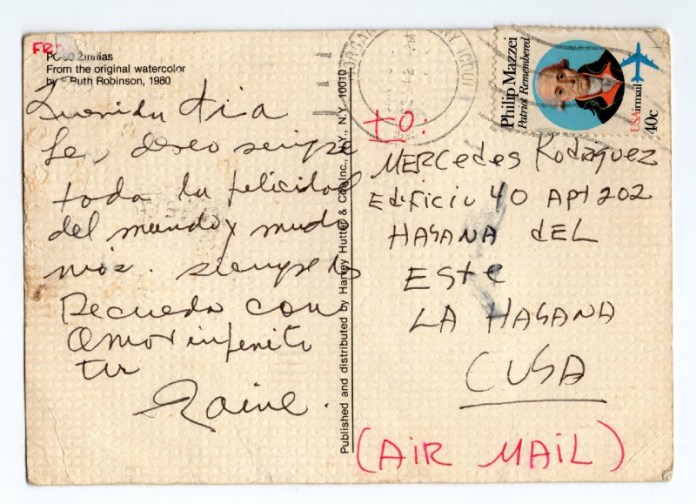 FROM
PC 30 Zinnias
From the original watercolor
by Ruth Robinson, 1980
Querida tia
Le, deseo sempre
toda la felicidad
del mundo y mucho
mas. siempre lo
recuerda con
amor infenito
tu
Published and distributed by Harvey Hutter & Co. Inc., N.Y. 10010
Philip Mazzei
Patriot Remembered
USAirmail
40c
to:
MERCEDES Rodriguez
Edificiu 40 APt 202
HABANA dEL
ESte
LA HABANA
CUBA
(AIR MAIL)